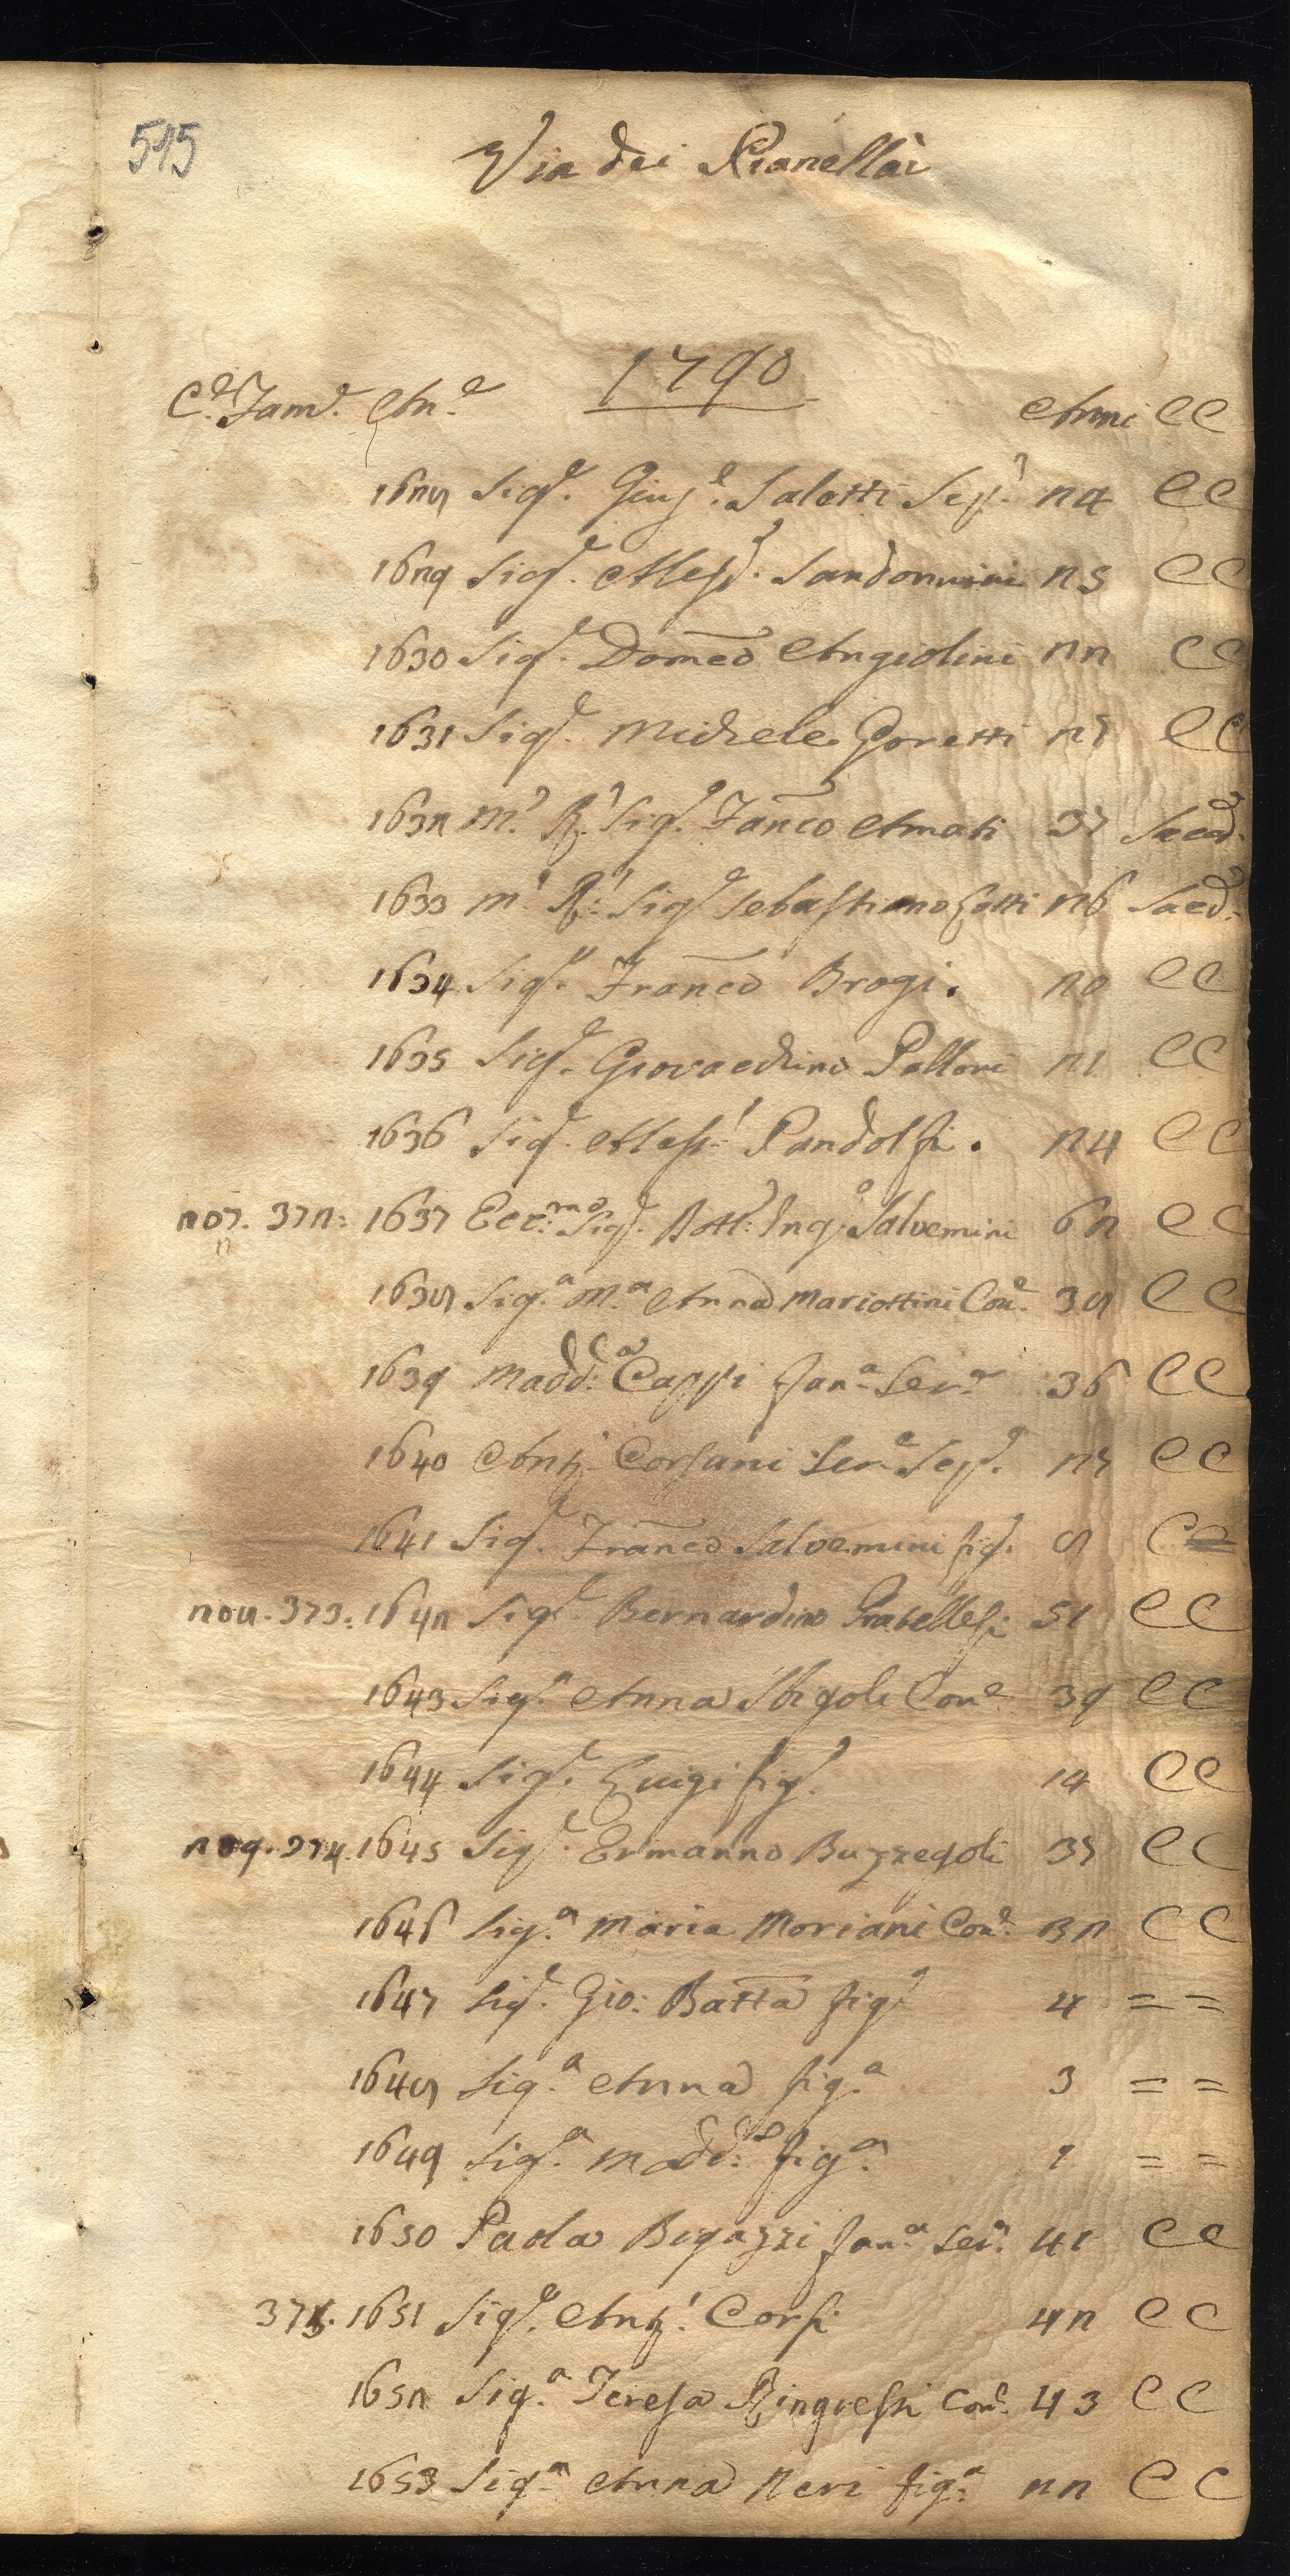 515
Via dei Pianellai
1790
C.e Fam.e An.e Anni CC
1628 Sig.r Gius.e Saletti Sep.e 24 CC
1629 Sig.r Aless.o Sandonnini 25 CC
1630 Sig.r Domeco Angiolini 22 CC
1631 Sig.r Michele Goretti 27 CC
1632 M.o R.o Sig.r Franco Amati 37 Sacerd.
1633 M.o R.o Sig.r Sebastiano Lotti 26 Sacd.
1634 Sig.r Franco Brogi. 20 CC
1635 Sig.r Giovacchino Palloni 21 CC
1636 Sig.r Aless.o Pandolfi. 24 CC
207. 372: 1637 Ecc:mo Sig.r Dott: Ang:o Salvemini 62 CC
1638 Sig.a M.a Anna Mariottini Con.e 38 CC
1639 Madd:a Cappi fan.a Ser.e 36 CC
1640 Ant.o Corsani Ser.e Sep.e 27 CC
1641 Sig.r Franco Salvemini fig.o 8 C=
208. 373: 1642 Sig.r Bernardino Grabellesi 51 CC
1643 Sig.a Anna Sbigoli Con.e 39 CC
1644 Sig.r Luigi fig.o 14 CC
209. 374. 1645 Sig.r Ermanno Buzzegoli 37 CC
1646 Sig.a Maria Moriani Con.e 32 CC
1647 Sig.r Gio: Batta fig.o 4 = =
1648 Sig.a Anna fig.a 3 = =
1649 Sig.a Madd:a fig.a 1 = =
1650 Paola Bigazzi fan.a Ser.a 41 CC
375. 1651 Sig.r Ant.o Corsi 42 CC
1652 Sig.a Teresa Ringressi Con.e 43 CC
1653 Sig.a Anna Neri fig:a 22 CC